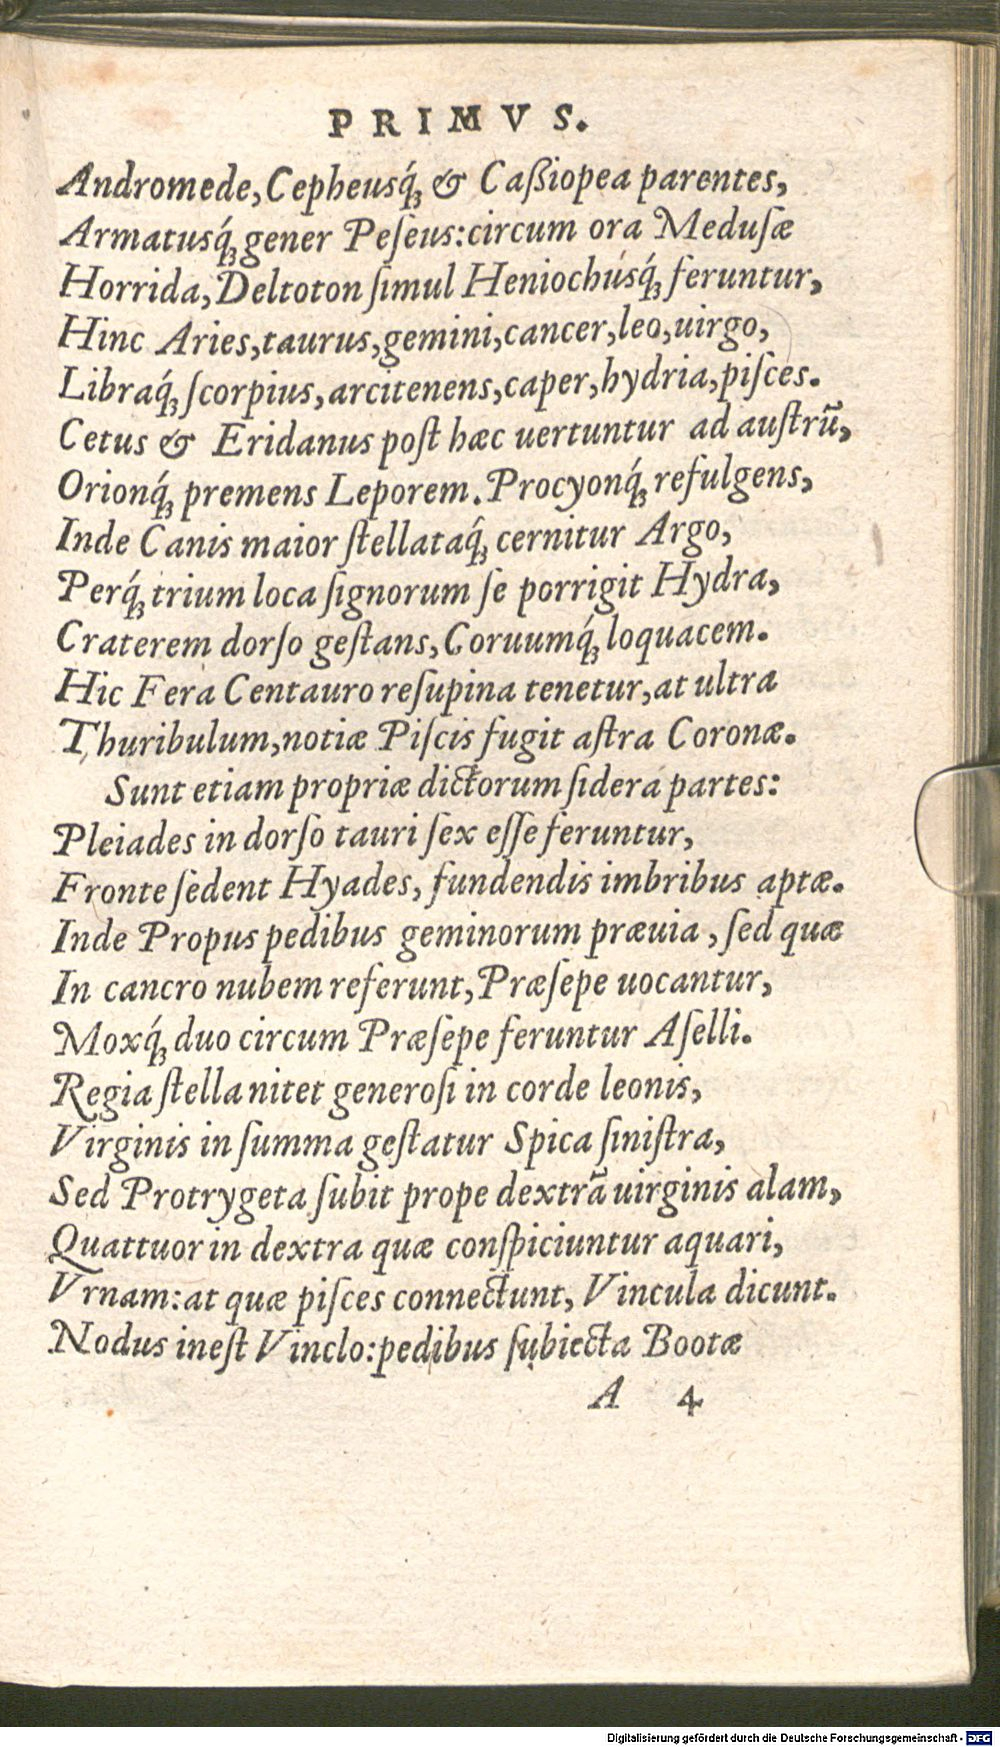 PRIMVS.
Andromede, Cepheusq́ꝫ & Caßiopea parentes,
Armatusq́ꝫ gener Peſeus: circum ora Meduſæ
Horrida, Deltoton ſimul Heniochúsq́ꝫ feruntur,
Hinc Aries, taurus, gemini, cancer, leo, uirgo,
Libraq́ꝫ ſcorpius, arcitenens, caper, hydria, piſces.
Cetus & Eridanus poſt hæc uertuntur ad auſtrũ,
Orionq́ꝫ premens Leporem. Procyonq́ꝫ refulgens,
Inde Canis maior ſtellataq́ꝫ cernitur Argo,
Perq́ꝫ trium loca ſignorum ſe porrigit Hydra,
Craterem dorſo geſtans, Coruumq́ꝫ loquacem.
Hic Fera Centauro reſupina tenetur, at ultra
Thuribulum, notiæ Piſcis fugit aſtra Coronæ.
Sunt etiam propriæ dictorum ſidera partes:
Pleiades in dorſo tauri ſex eſſe feruntur,
Fronte ſedent Hyades, fundendis imbribus aptæ.
Inde Propus pedibus geminorum præuia, ſed quæ
In cancro nubem referunt, Præſepe uocantur,
Moxq́ꝫ duo circum Præſepe feruntur Aſelli.
Regia ſtella nitet generoſi in corde leonis,
Virginis in ſumma geſtatur Spica ſiniſtra,
Sed Protrygeta ſubit prope dextrã uirginis alam,
Quattuor in dextra quæ conſpiciuntur aquari,
Vrnam: at quæ piſces connectunt, Vincula dicunt.
Nodus ineſt Vinclo: pedibus ſubiecta Bootæ
A 4
Digitalisierung gefördert durch die Deutsche Forschungsgemeinschaft - DFG